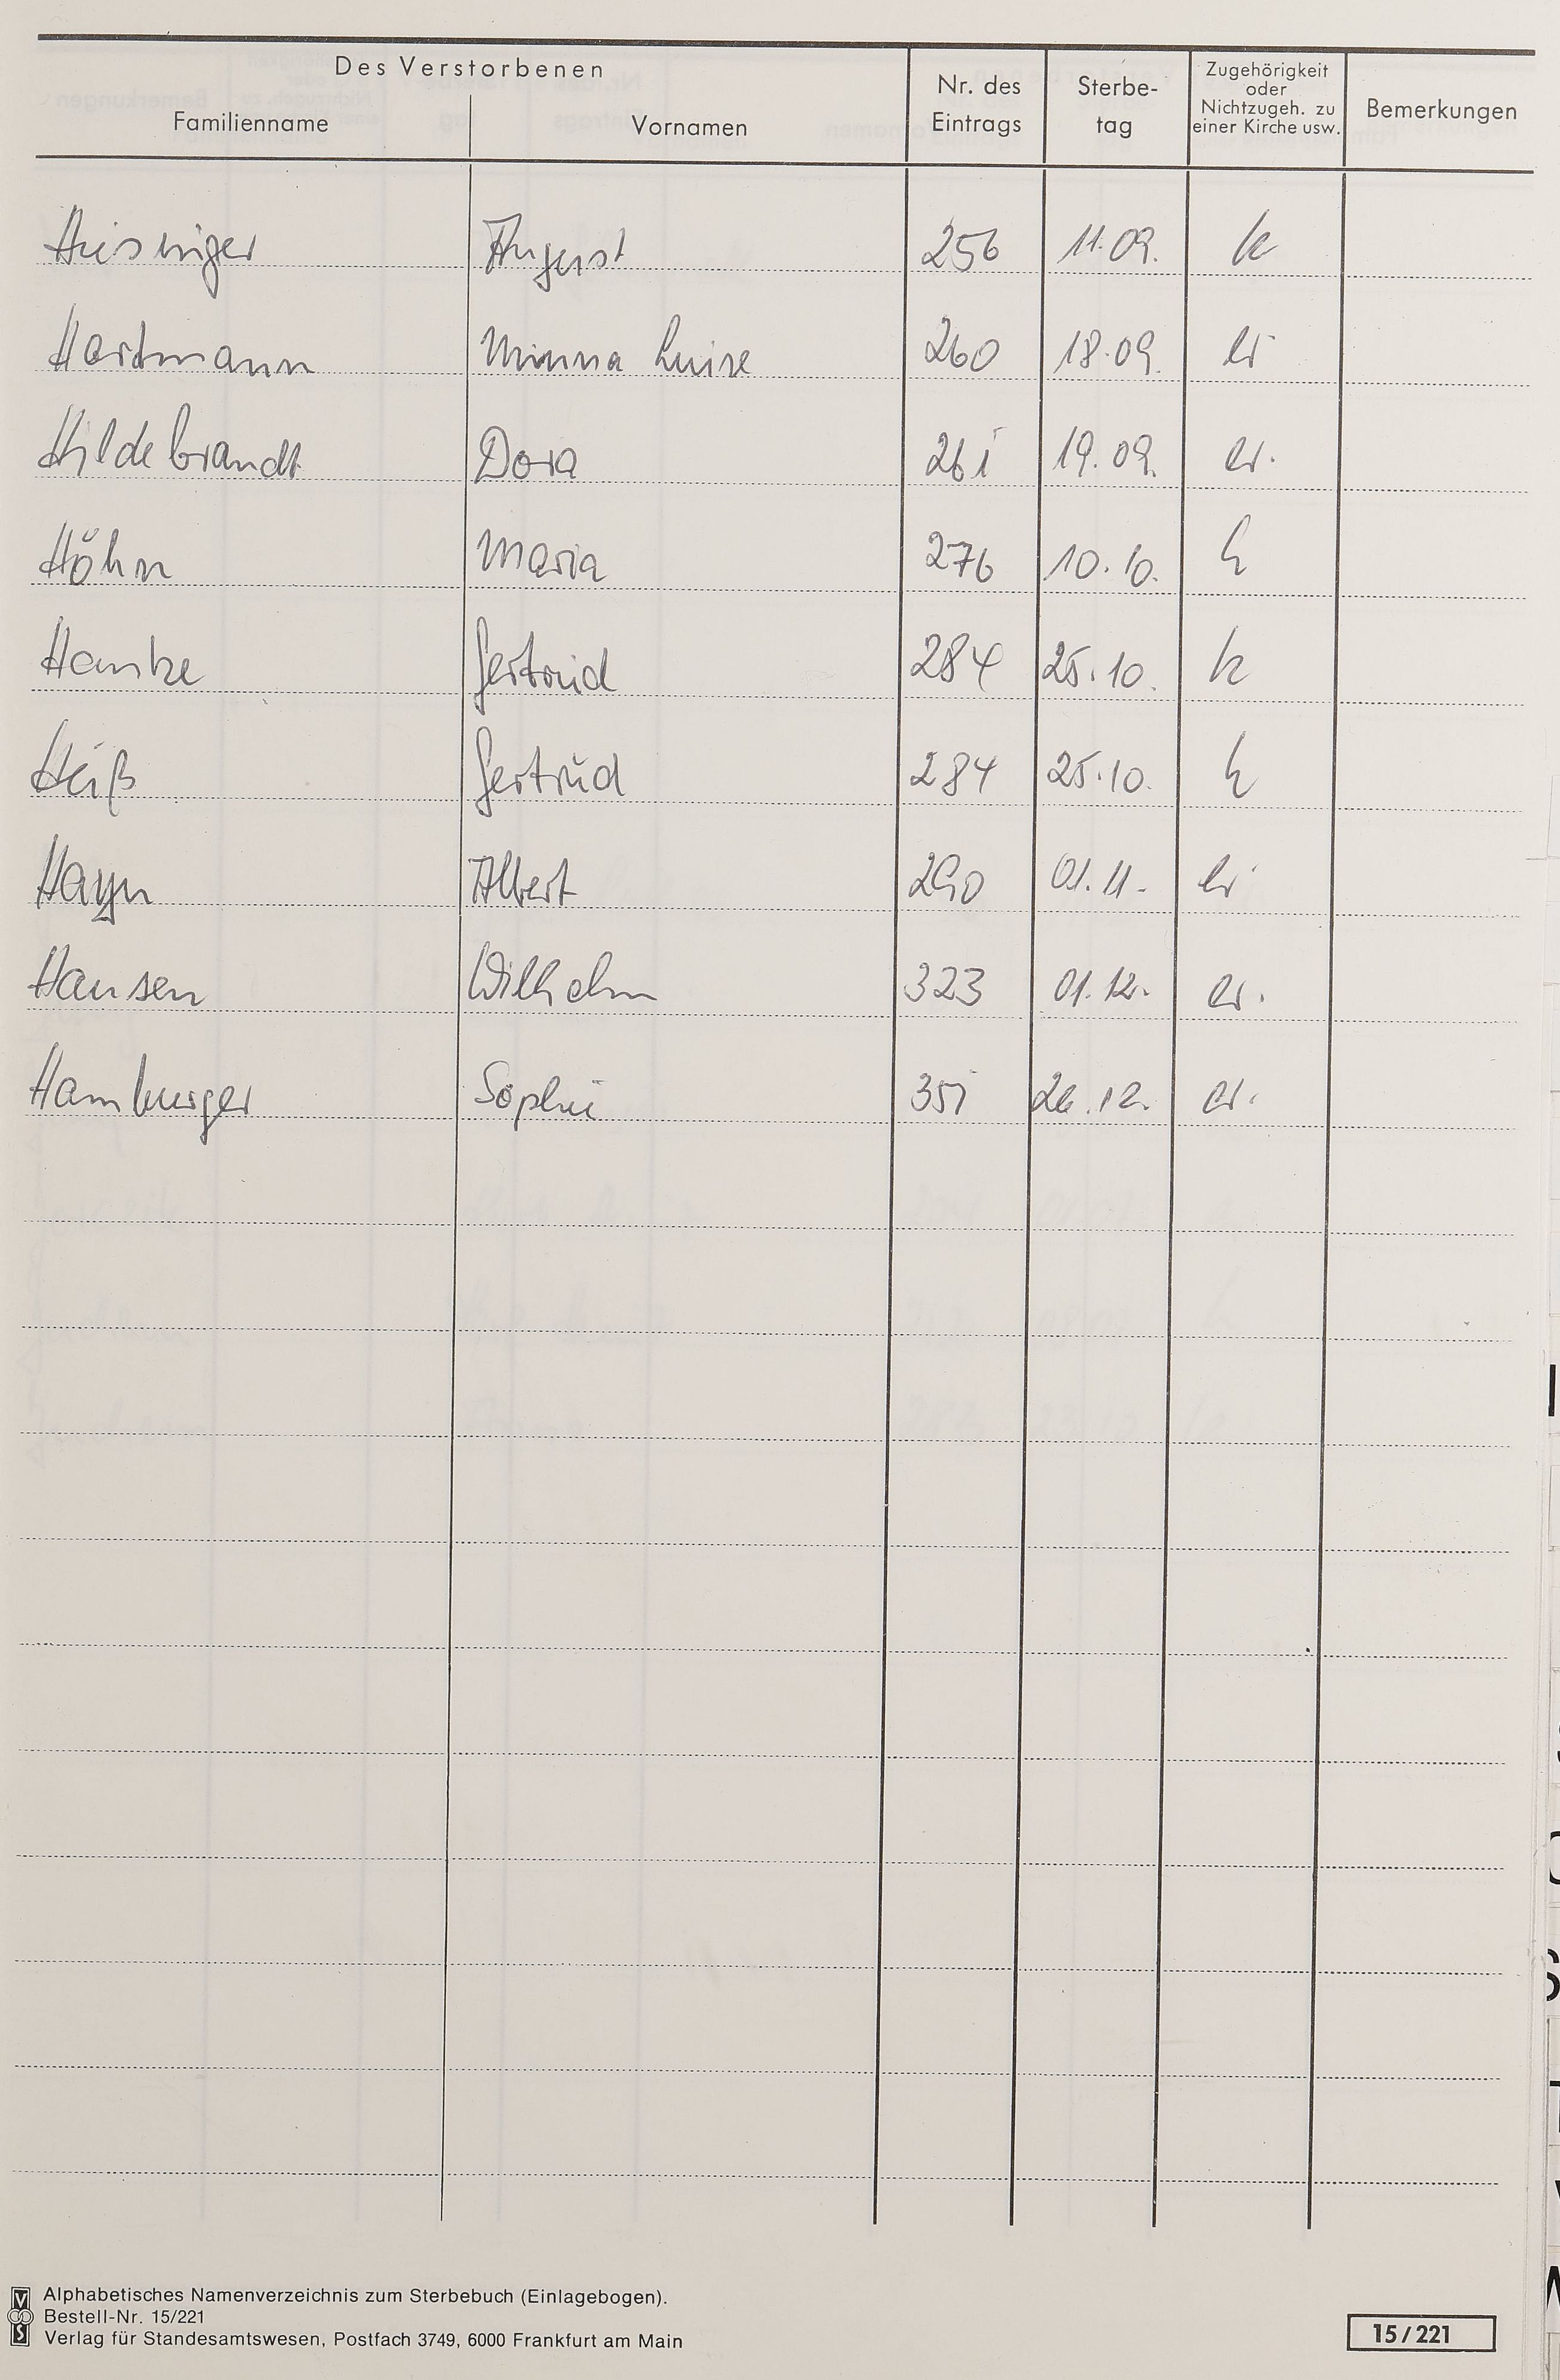 Des Verstorbenen
Familienname Vornamen Nr. des Eintrags Sterbe-tag Zugehörigkeit oder Nichtzugeh. zu einer Kirche usw. Bemerkungen
August 256 11.09. k
Hartmann Minna Luise 260 18.09. ev
Hildebrandt Dora 261 19.09. ev.
Höhn Maria 276 10.10. k
Hanke Gertrud 284 25.10. k
Heiß Gertrud 284 25.10. k
Hayn Albert 290 01.11. ev
Hansen Wilhelm 323 01.12. ev.
Hamburger Sophie 351 26.12. ev.
Alphabetisches Namenverzeichnis zum Sterbebuch (Einlagebogen).
Bestell-Nr. 15/221
Verlag für Standesamtswesen, Postfach 3749, 6000 Frankfurt am Main
15/221